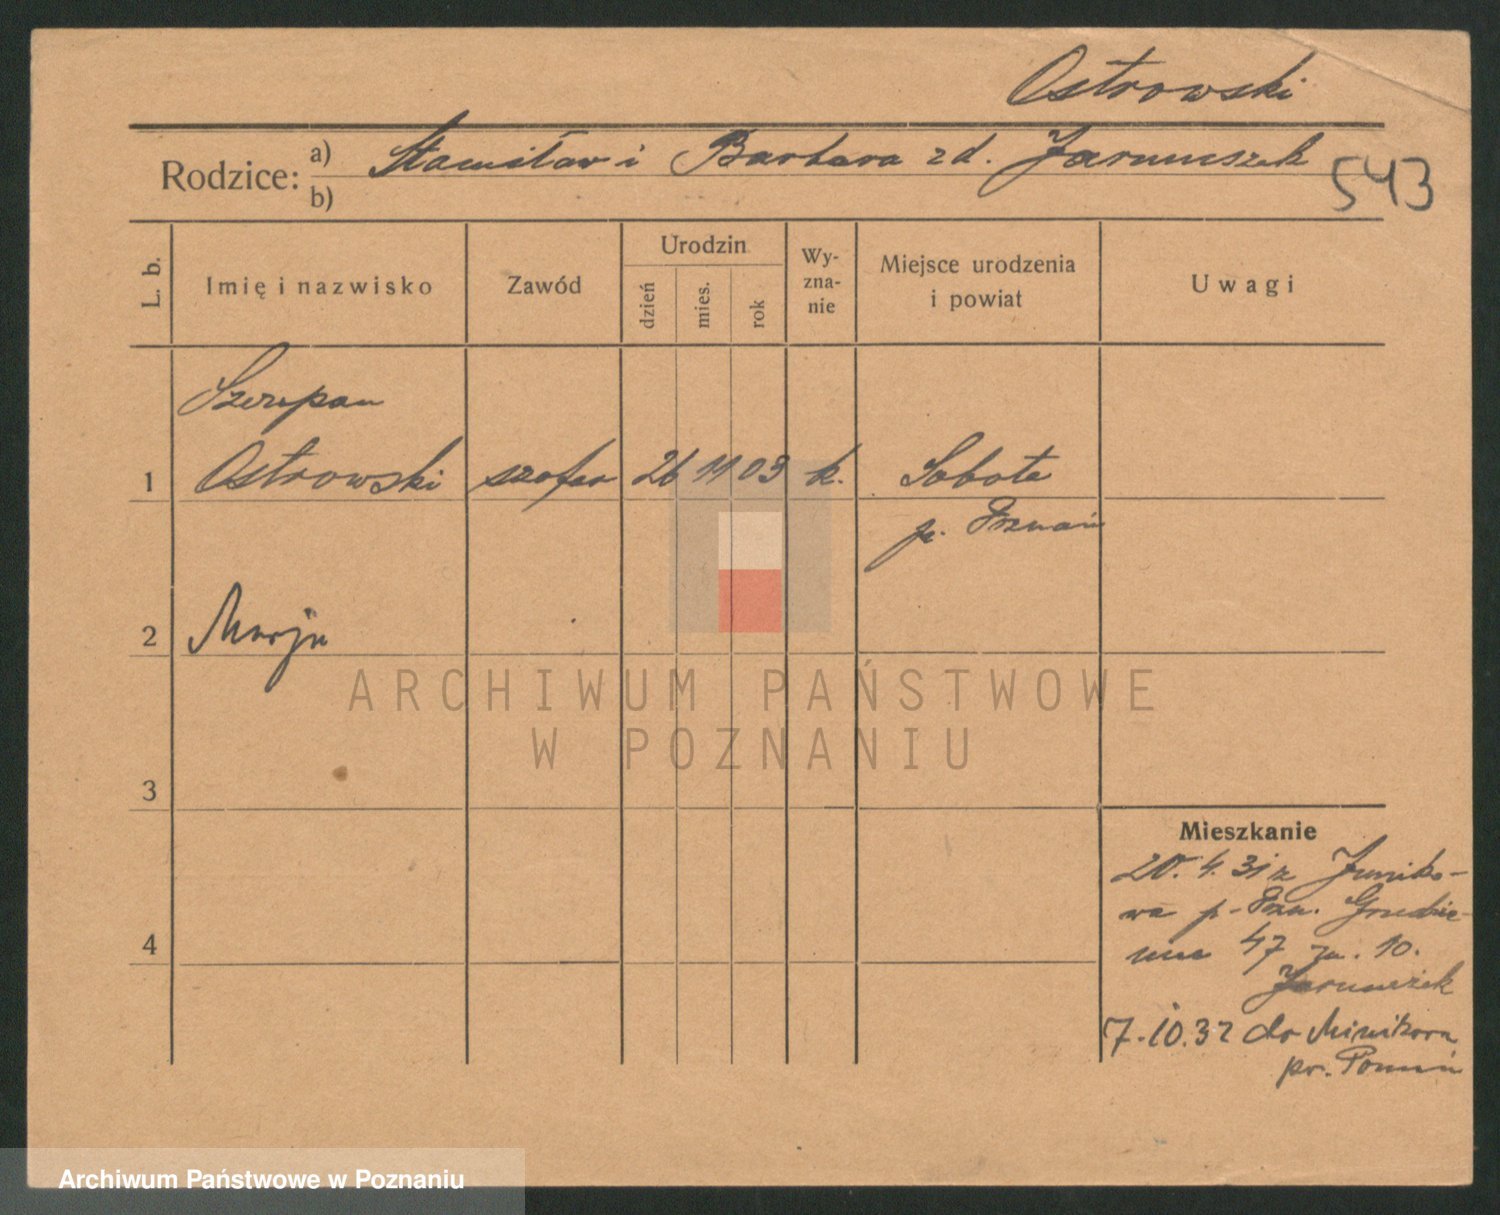 Ostrowski
Rodzice: a) Stanisław i Barbara zd. Jarmuszek
b)
543
L. b.
Imię i nazwisko
Zawód
Urodzin
dzień
mies.
rok
Wy-
zna-
nie
Miejsce urodzenia
i powiat
Uwagi
Szczepan
1 Ostrowski szofer 26 11 03 k. Sobota
p. Poznań
2 Marja
3
4
Mieszkanie
20. 4. 31 z Juniko-
wa p. Pozn. Grudzie-
niec 47 m. 10.
Jarmuszek
7.10.32 do Minikowa
pr. Poznań
ARCHIWUM PAŃSTWOWE
W POZNANIU
Archiwum Państwowe w Poznaniu